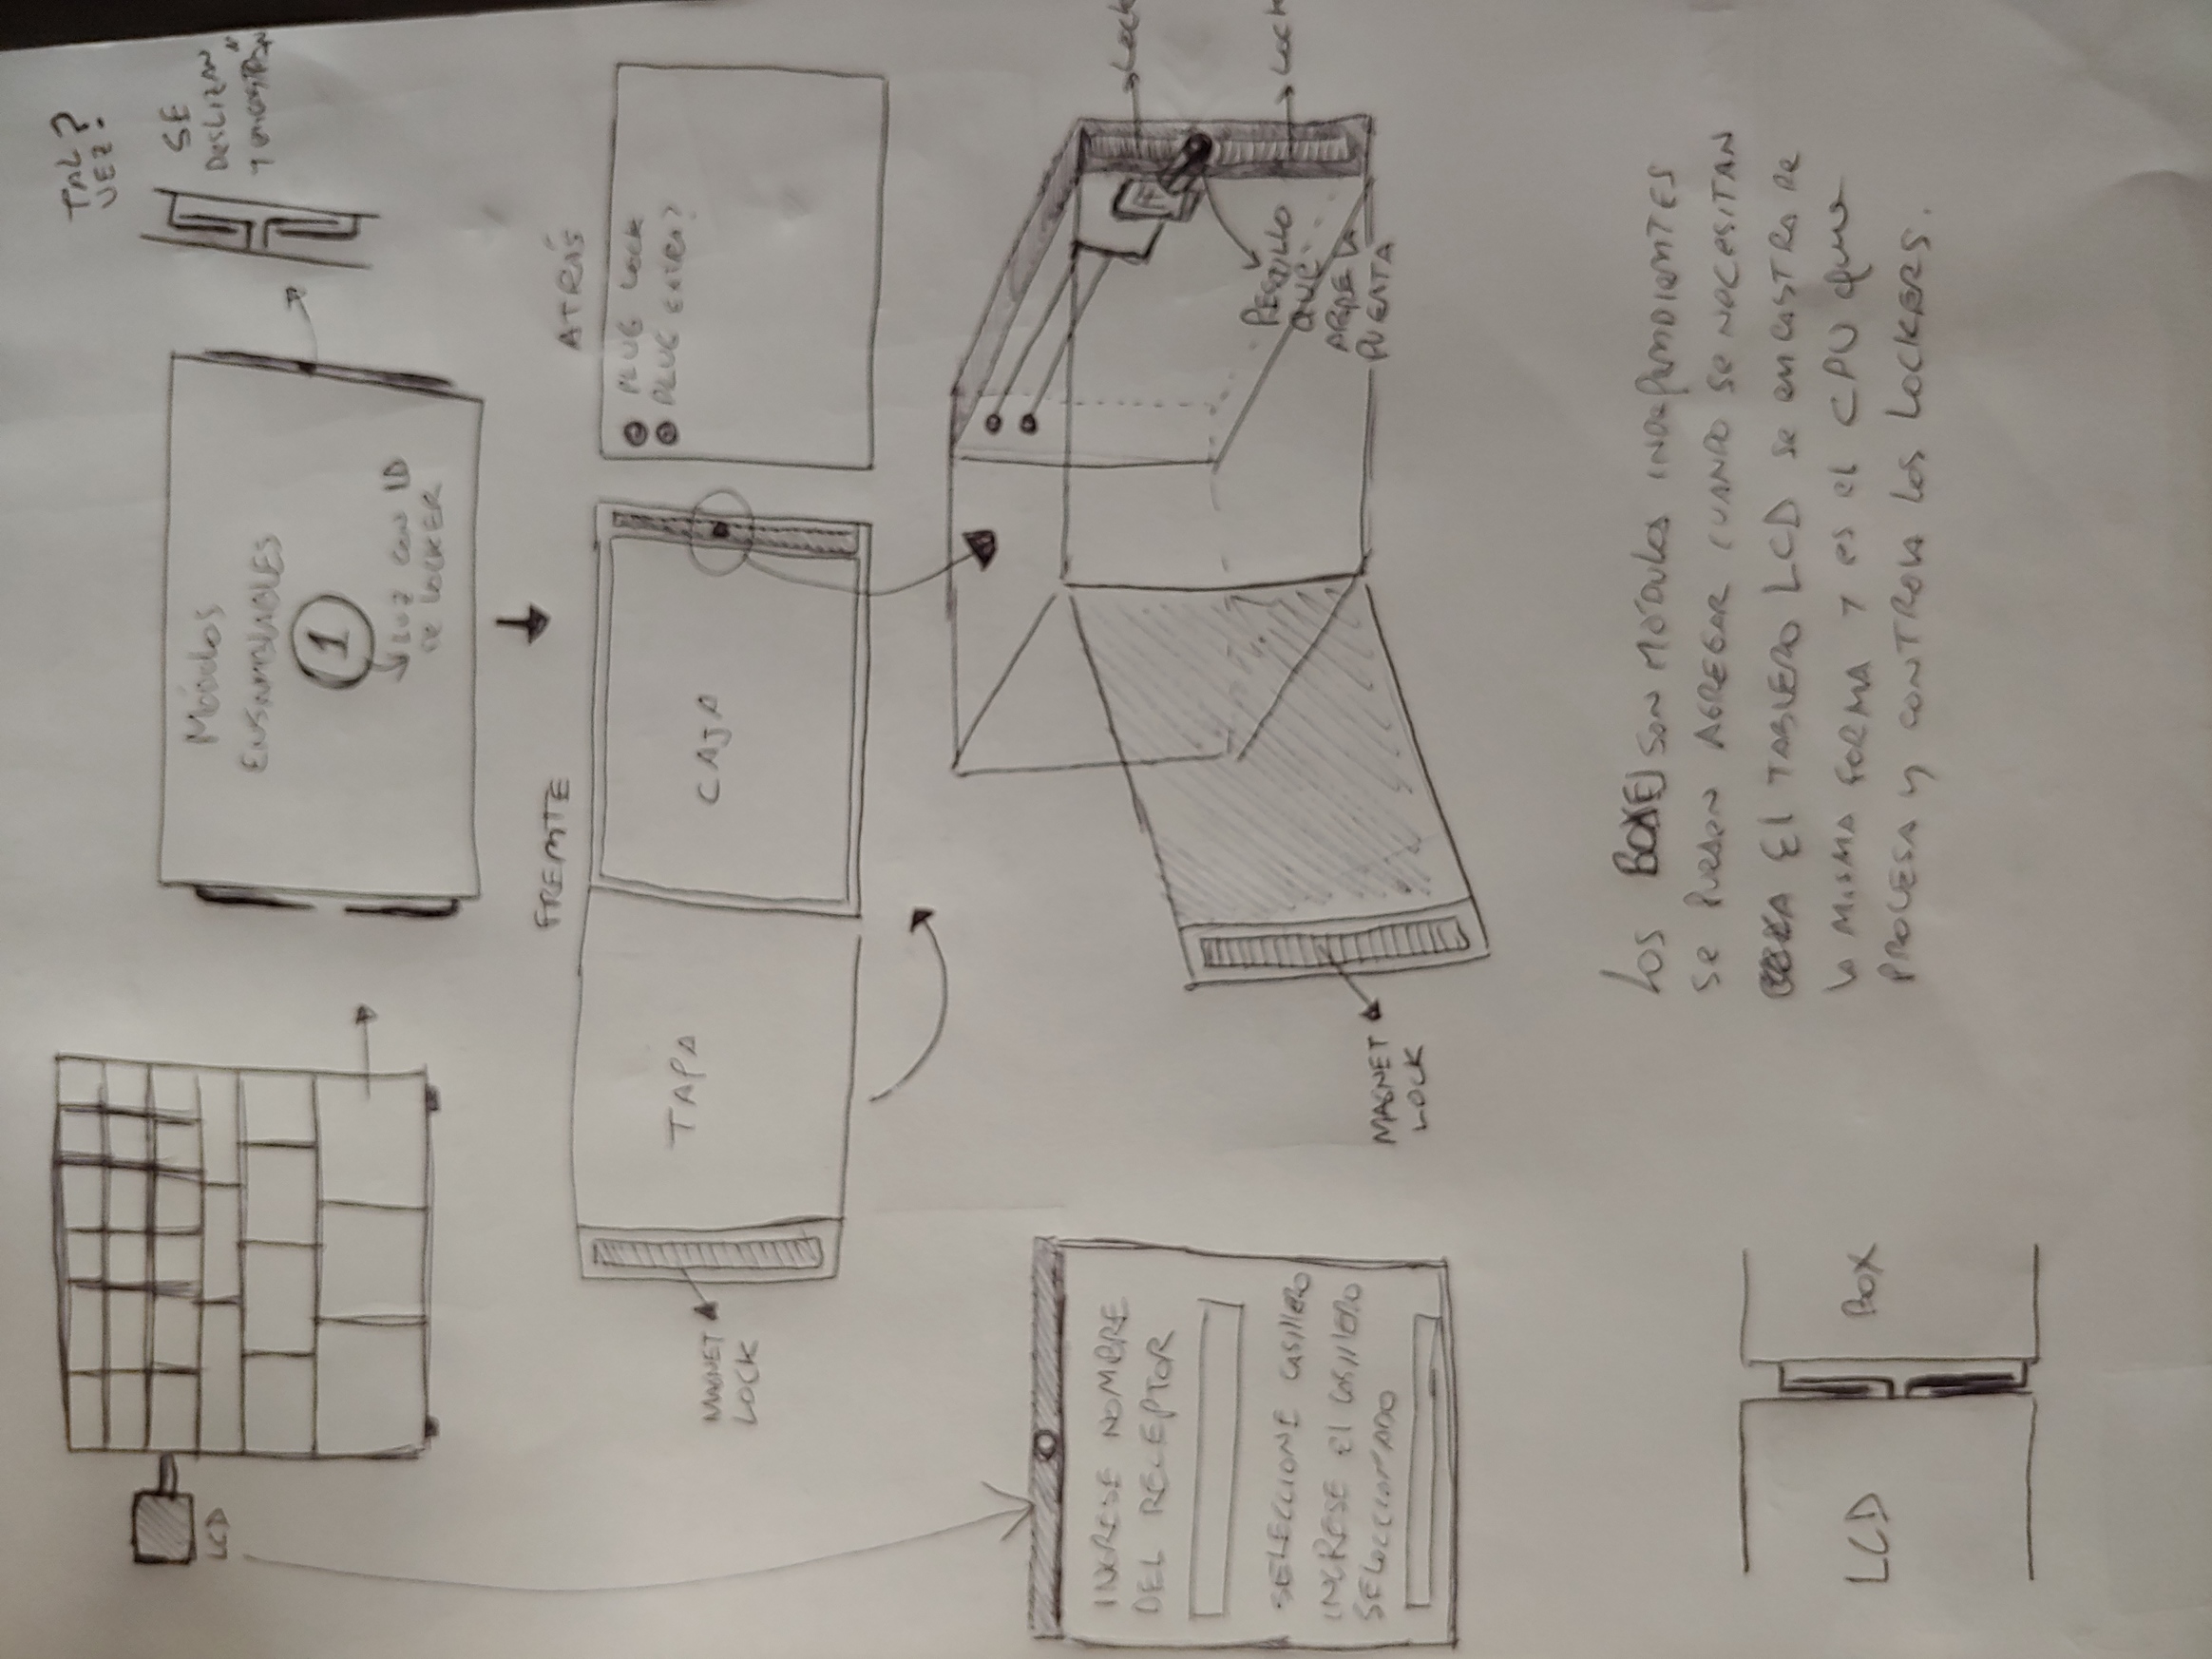 TAL
VEZ?
LCD
MÓDULOS
ENSAMBLABLES
1
LUZ CON ID
DE LOCKER
SE
DESLIZAN
Y ENCASTRAN
FRENTE
ATRÁS
TAPA
CAJA
MAGNET
LOCK
PLUG LOCK
PLUG EXTRA?
INGRESE NOMBRE
DEL RECEPTOR
SELECCIONE CASILLERO
INGRESE El CASILLERO
SELECCIONADO
LOCK
LOCK
PESTILLO
QUE
ABRE LA
PUERTA
MAGNET
LOCK
LOS BOXES SON MÓDULOS INDEPENDIENTES
SE PUEDEN AGREGAR CUANDO SE NECESITAN
El TABLERO LCD SE ENCASTRA DE
LA MISMA FORMA Y ES El CPU que
PROCESA Y CONTROLA LOS LOCKERS.
LCD
BOX